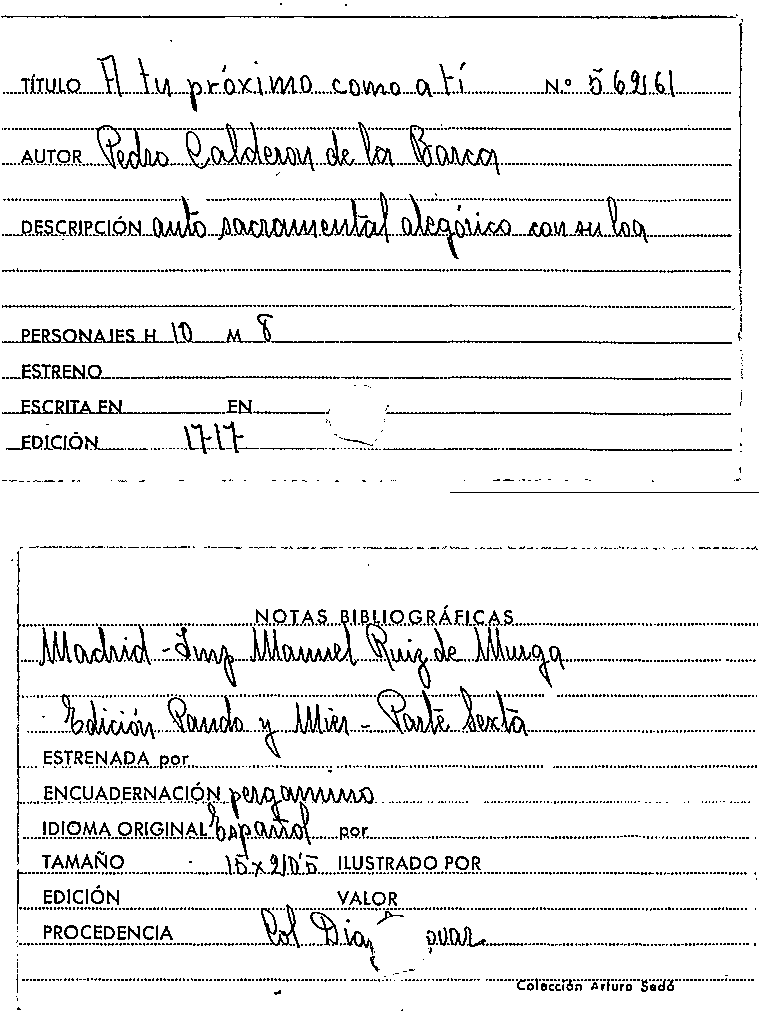 TÍTULO A tu próximo como a tí N.º 56961
AUTOR Pedro Calderon de la Barca
DESCRIPCIÓN auto sacramental alegórico con su loa
PERSONAJES H 10 M 8
ESTRENO
ESCRITA EN EN
EDICIÓN 1717
NOTAS BIBLIOGRÁFICAS
Madrid - Imp Manuel Ruiz de Murga
Edición Pando y Mier - Parte Sexta
ESTRENADA por
ENCUADERNACIÓN pergamino
IDIOMA ORIGINAL Español por
TAMAÑO 15 x 20'5 ILUSTRADO POR
EDICIÓN VALOR
PROCEDENCIA Col Diaz
Colección Arturo Sedó